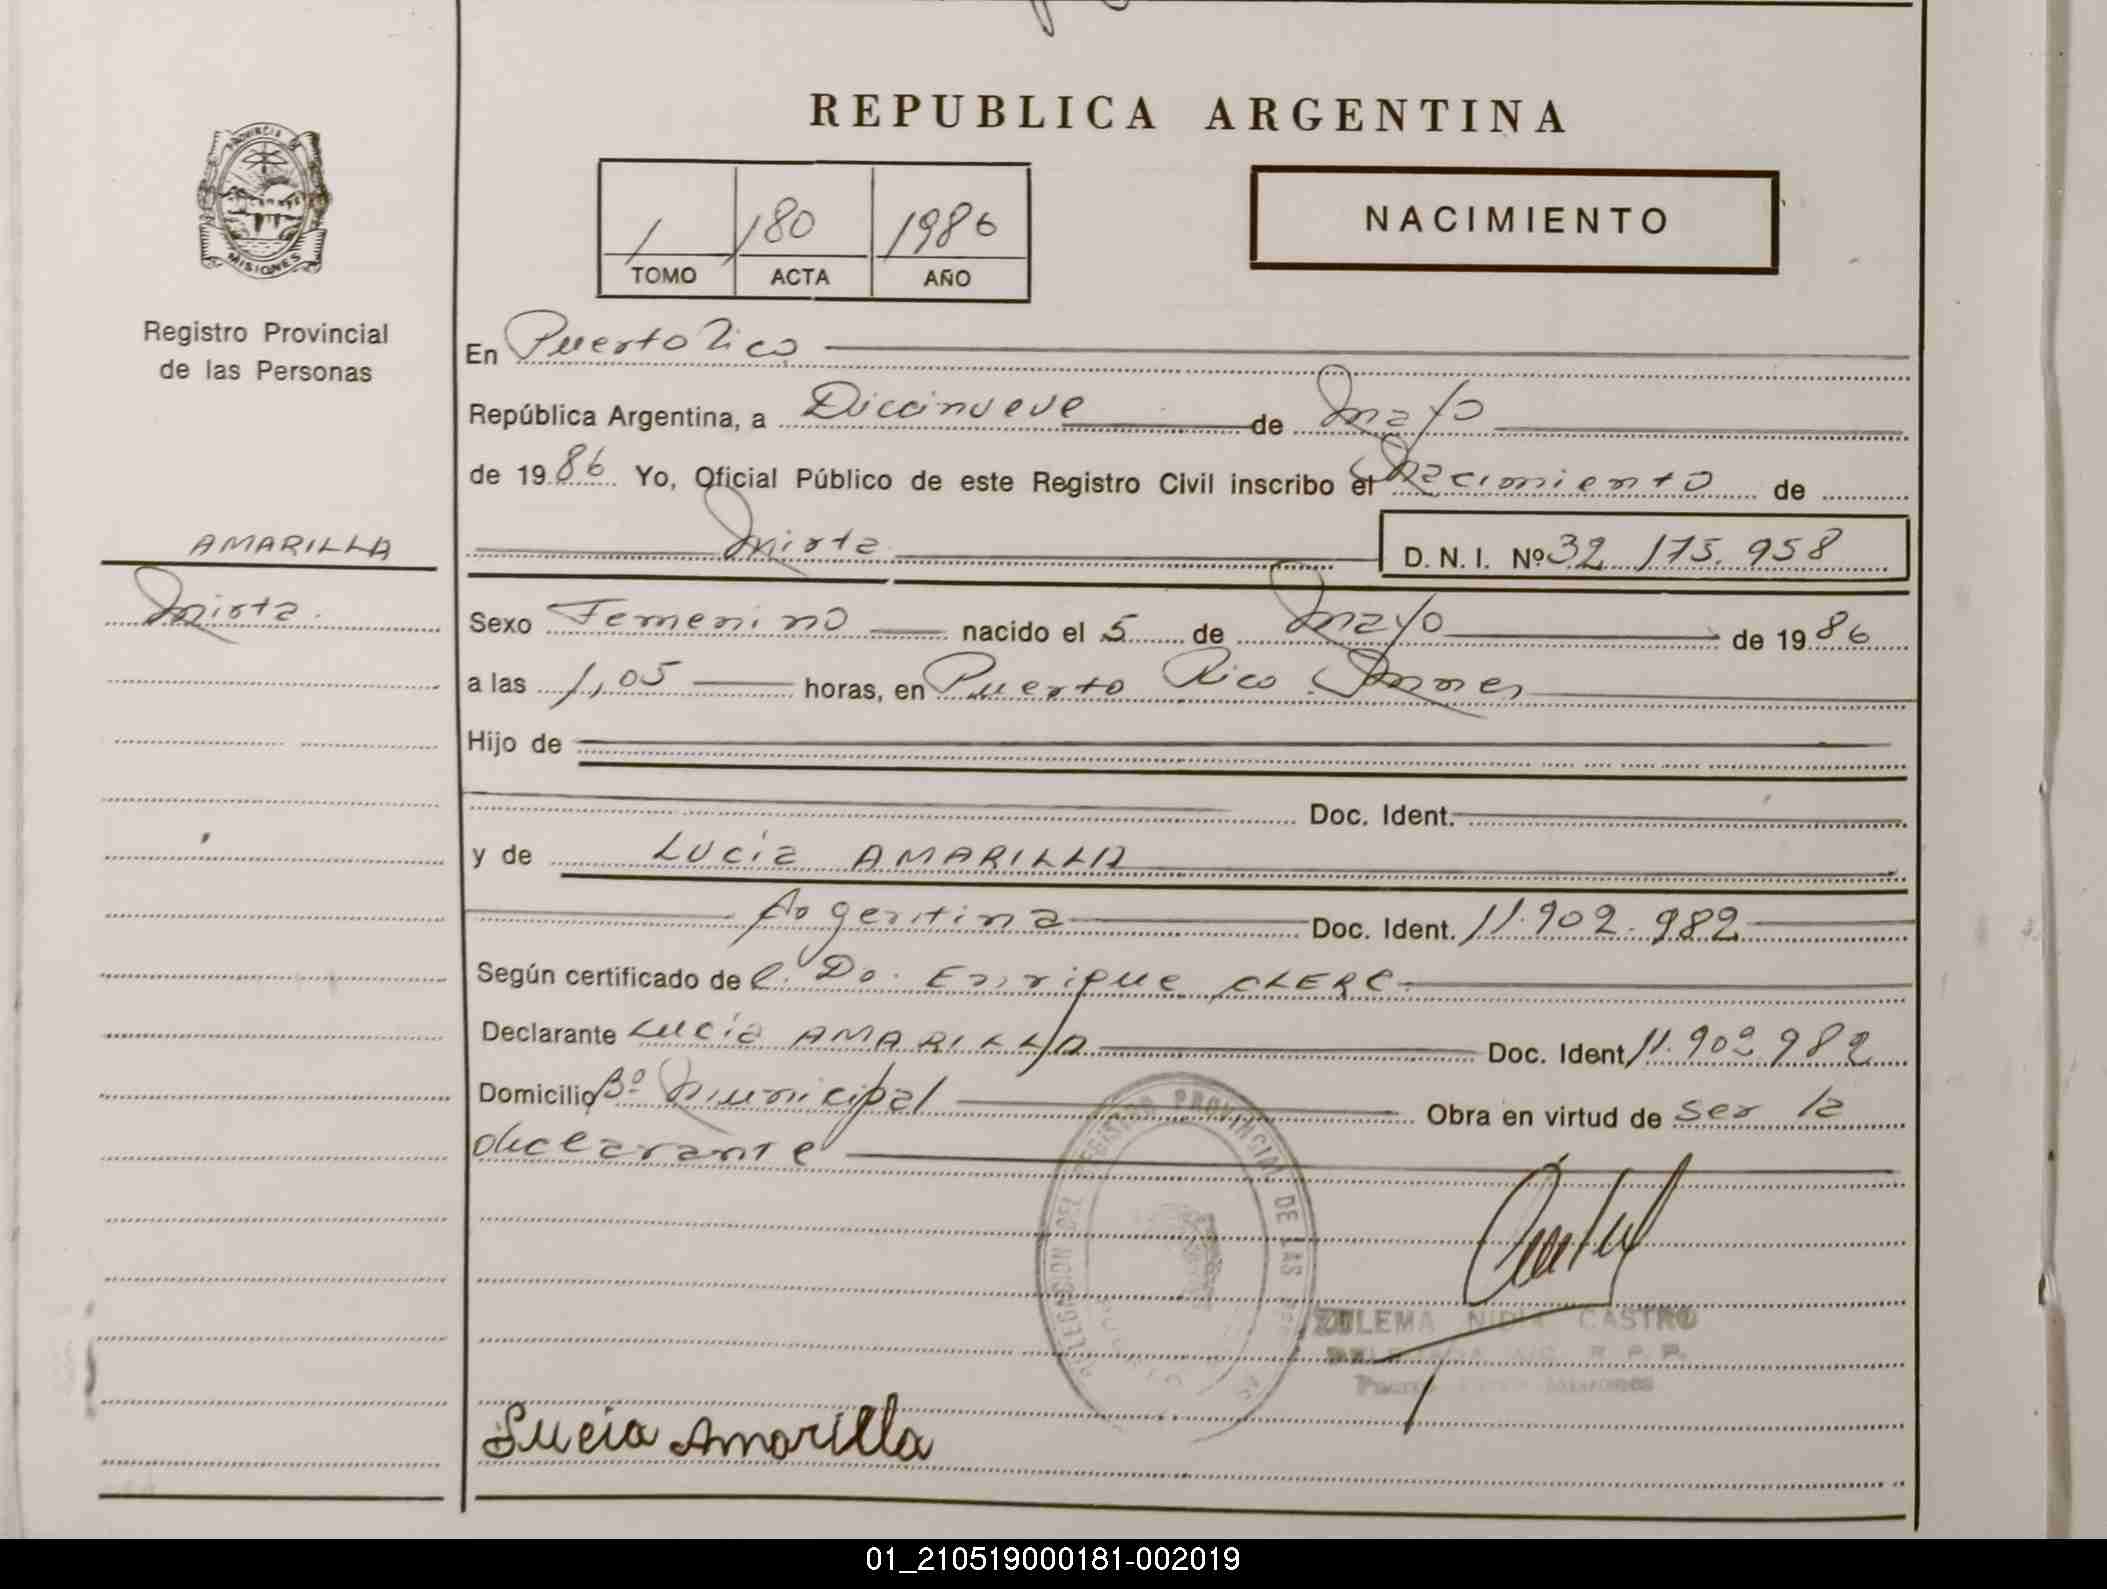 REPUBLICA ARGENTINA
PROVINCIA DE
MISIONES
Registro Provincial
de las Personas
1 180 1986
TOMO ACTA AÑO
NACIMIENTO
En Puerto Rico
República Argentina, a Diecinueve de Mayo
de 1986 Yo, Oficial Público de este Registro Civil inscribo el Nacimiento de
AMARILLA
Mirta
Mirta D. N. I. Nº 32 175.958
Sexo Femenino nacido el 5 de Mayo de 1986
a las 1,05 horas, en Puerto Rico Mnes
Hijo de
Doc. Ident.
y de Lucía AMARILLA
Argentina Doc. Ident. 11.902.982
Según certificado de l. Dr. Enrique CLERC
Declarante Lucía AMARILLA Doc. Ident 11.902.982
Domicilio Bº Municipal Obra en virtud de ser la
declarante
DELEGACION DEL REGISTRO PROVINCIAL DE LAS
ZULEMA NIDIA CASTRO
R. P. P.
Lucia Amarilla
01_210519000181-002019